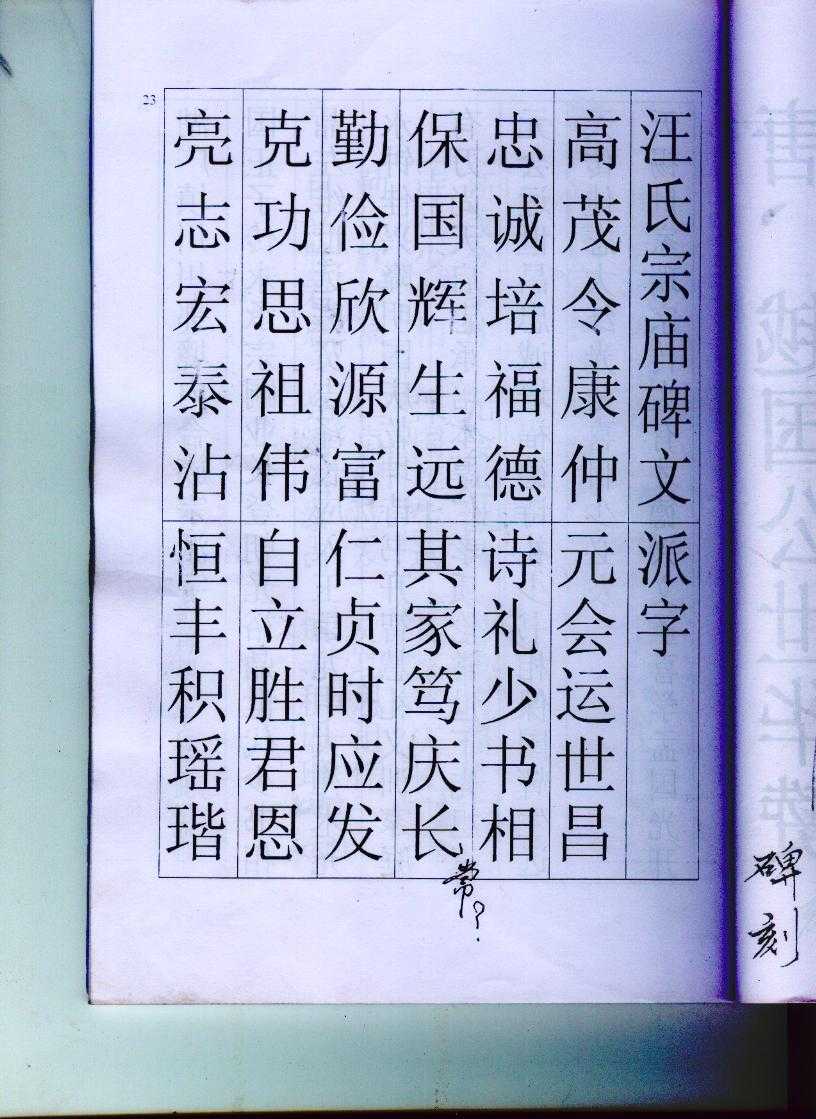 汪氏宗庙碑文派字
高茂令康仲元会运世昌
忠诚培福德诗礼少书相
保国辉生远其家笃庆长
常？
勤俭欣源富仁贞时应发
克功思祖伟自立胜君恩
亮志宏泰沾恒丰积瑶瑎
23
碑刻